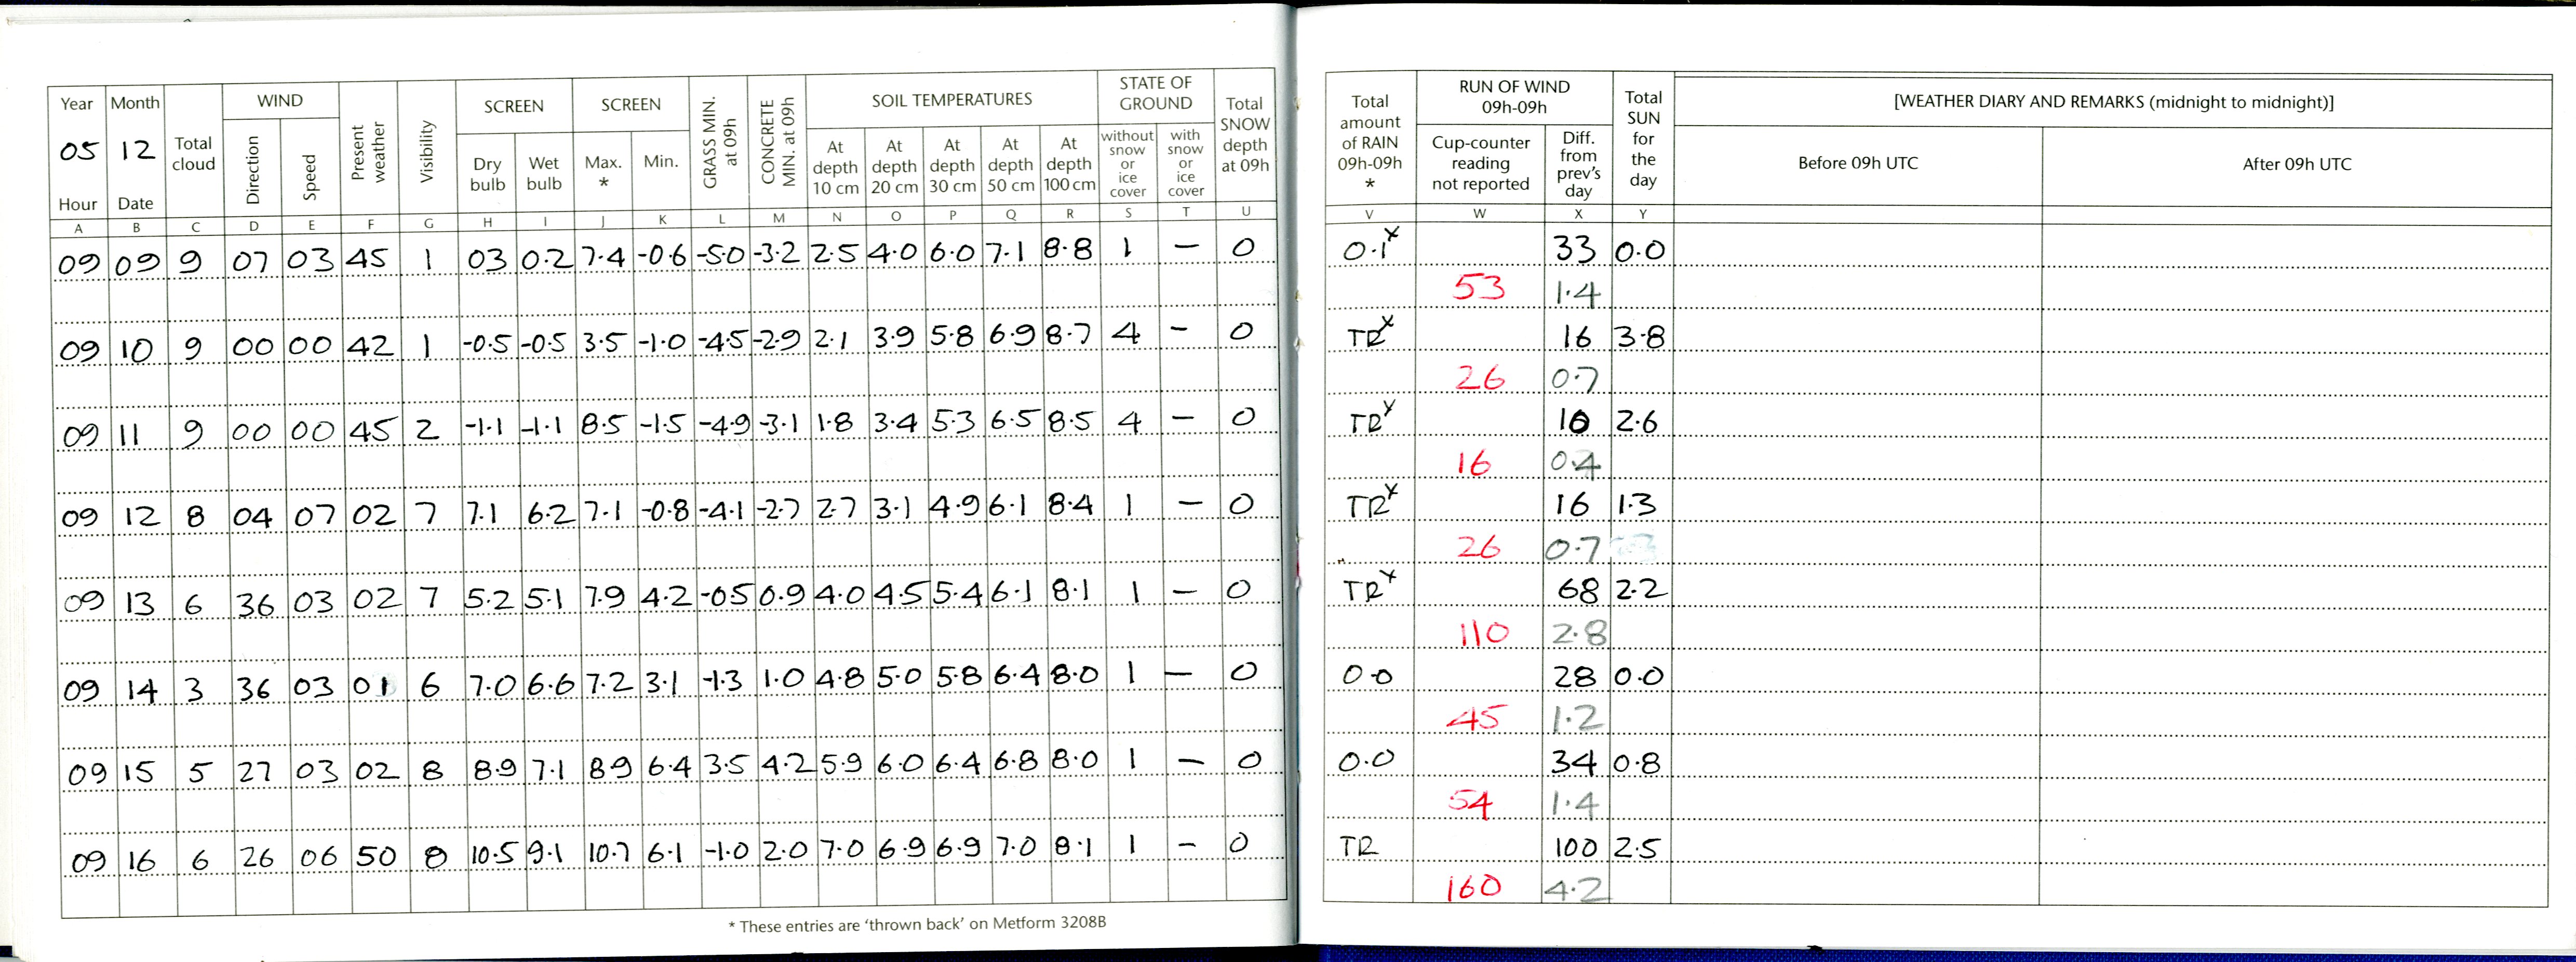 Year Month Total cloud WIND Present weather Visibility SCREEN SCREEN GRASS MIN. at 09h CONCRETE MIN. at 09h SOIL TEMPERATURES STATE OF GROUND Total SNOW depth at 09h
05 12 Direction Speed Dry bulb Wet bulb Max. * Min. At depth 10 cm At depth 20 cm At depth 30 cm At depth 50 cm At depth 100 cm without snow or ice cover with snow or ice cover
Hour Date
A B C D E F G H I J K L M N O P Q R S T U
09 09 9 07 03 45 1 03 0.2 7.4 -0.6 -5.0 -3.2 2.5 4.0 6.0 7.1 8.8 1 — 0
09 10 9 00 00 42 1 -0.5 -0.5 3.5 -1.0 -4.5 -2.9 2.1 3.9 5.8 6.9 8.7 4 — 0
09 11 9 00 00 45 2 -1.1 -1.1 8.5 -1.5 -4.9 -3.1 1.8 3.4 5.3 6.5 8.5 4 — 0
09 12 8 04 07 02 7 7.1 6.2 7.1 -0.8 -4.1 -2.7 2.7 3.1 4.9 6.1 8.4 1 — 0
09 13 6 36 03 02 7 5.2 5.1 7.9 4.2 -0.5 0.9 4.0 4.5 5.4 6.1 8.1 1 — 0
09 14 3 36 03 01 6 7.0 6.6 7.2 3.1 -1.3 1.0 4.8 5.0 5.8 6.4 8.0 1 — 0
09 15 5 27 03 02 8 8.9 7.1 8.9 6.4 3.5 4.2 5.9 6.0 6.4 6.8 8.0 1 — 0
09 16 6 26 06 50 8 10.5 9.1 10.7 6.1 -1.0 2.0 7.0 6.9 6.9 7.0 8.1 1 — 0
* These entries are ‘thrown back’ on Metform 3208B
Total amount of RAIN 09h-09h * RUN OF WIND 09h-09h Total SUN for the day [WEATHER DIARY AND REMARKS (midnight to midnight)]
Cup-counter reading not reported Diff. from prev's day Before 09h UTC After 09h UTC
V W X Y
0.1x 33 0.0
53 1.4
TRx 16 3.8
26 0.7
TRx 10 2.6
16 0.4
TRx 16 1.3
26 0.7
TRx 68 2.2
110 2.8
0.0 28 0.0
45 1.2
0.0 34 0.8
54 1.4
TR 100 2.5
160 4.2